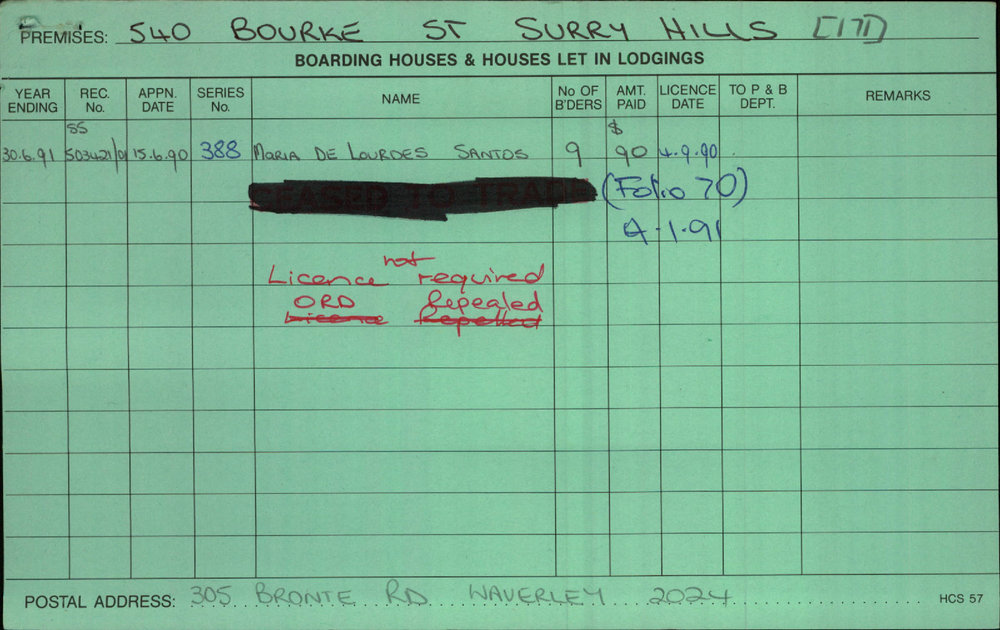 PREMISES: 540 BOURKE ST SURRY HILLS [171]
BOARDING HOUSES & HOUSES LET IN LODGINGS
YEAR ENDING REC. No. APPN. DATE SERIES No. NAME No OF B'DERS AMT. PAID LICENCE DATE TO P & B DEPT. REMARKS
SS $
30.6.91 503421/01 15.6.90 388 MARIA DE LOURDES SANTOS 9 90 4.9.90
CEASED TO TRADE (Folio 70)
4.1.91
not
Licence required
ORD Repealed
Licence Repelled
POSTAL ADDRESS: 305 BRONTE RD WAVERLEY 2024 HCS 57